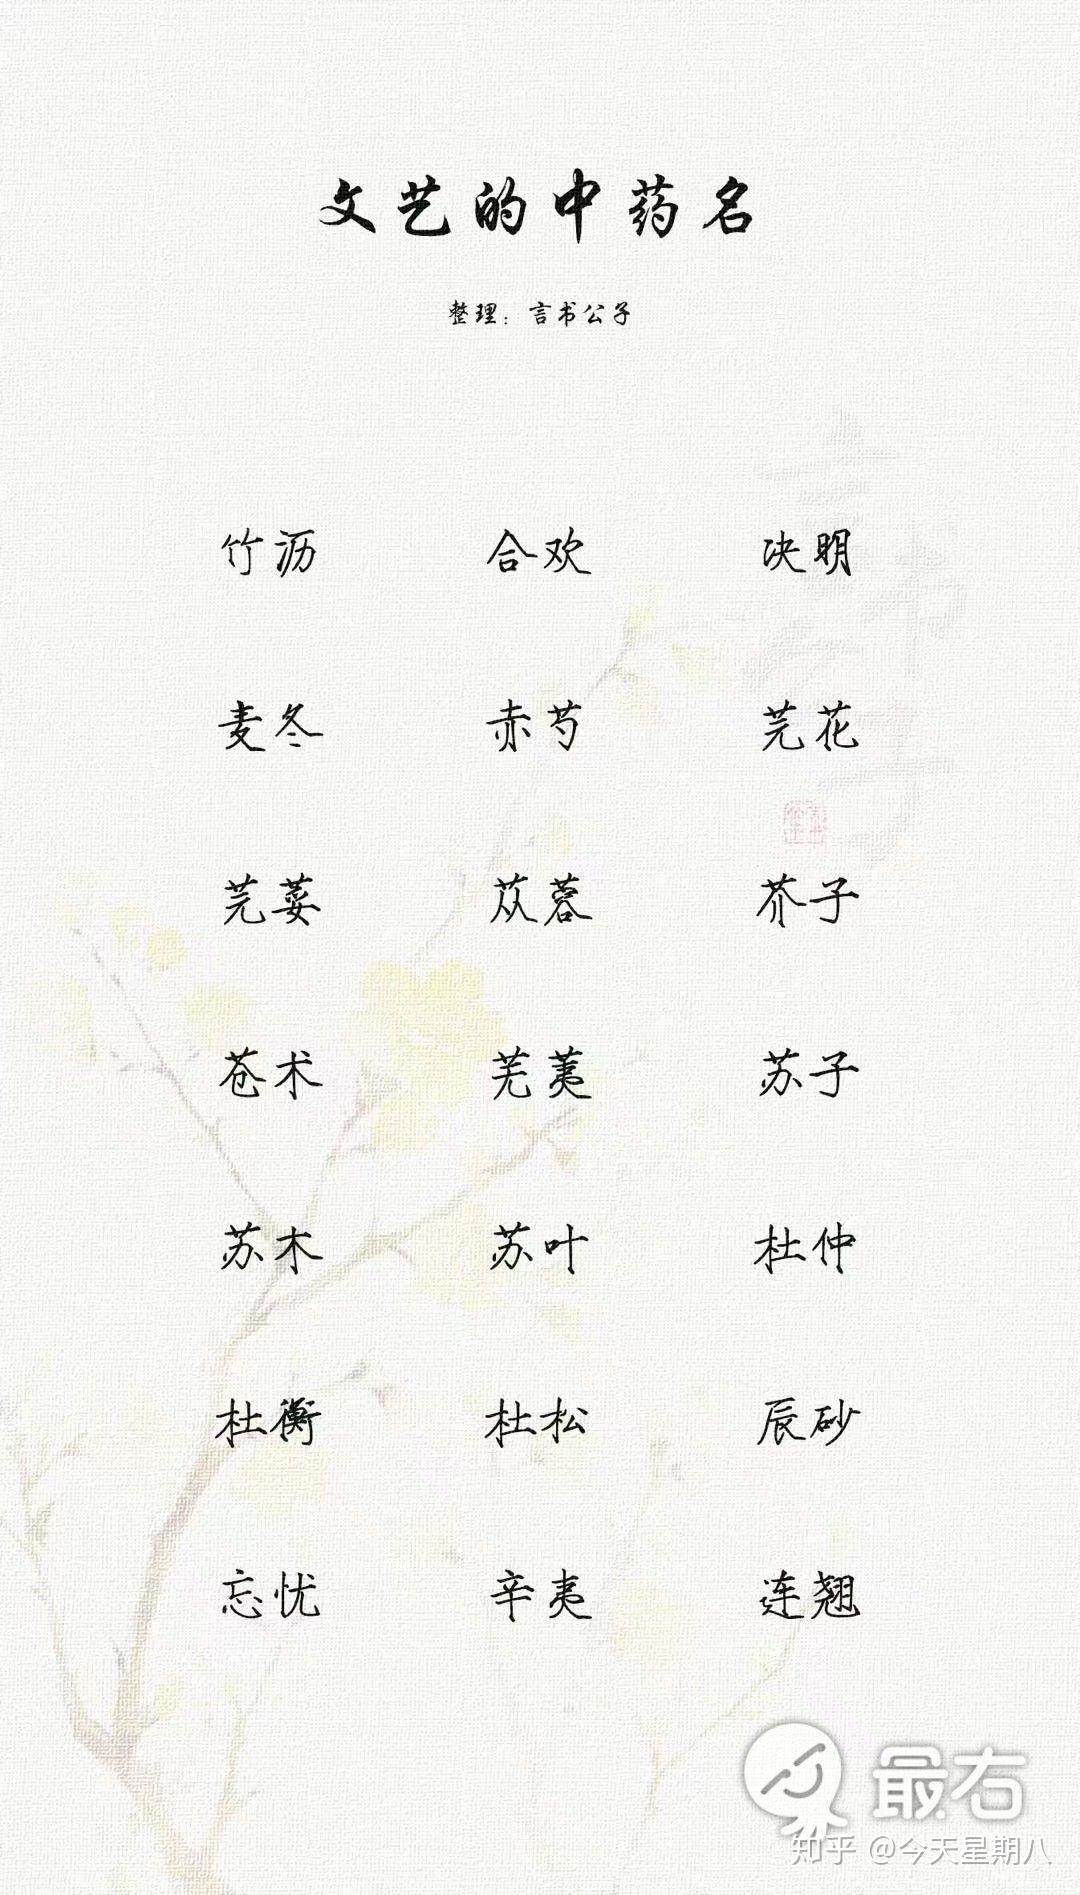 文艺的中药名
整理：言书公子
竹沥 合欢 决明
麦冬 赤芍 芫花
芫荽 苁蓉 芥子
苍术 芜荑 苏子
苏木 苏叶 杜仲
杜衡 杜松 辰砂
忘忧 辛夷 连翘
最右
知乎 @今天星期八